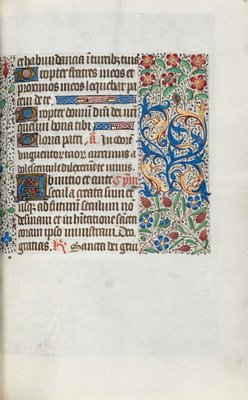 et habundancia in turrib; tuis
Propter fratres meos et
proximos meos loquebar pa
cem de te.
Propter domum dni dei nri
quesiui bona tibi
Gloria patri. A. In odore
unguentor tuor currimus a
dolescentule dilexerunt te nimis.
Ab initio et ante
secula creata sum et
usqz ad futurum seculum non
desinam et in habitatione sancta
coram ipso ministraui. Deo
gratias. R Sancta dei geni